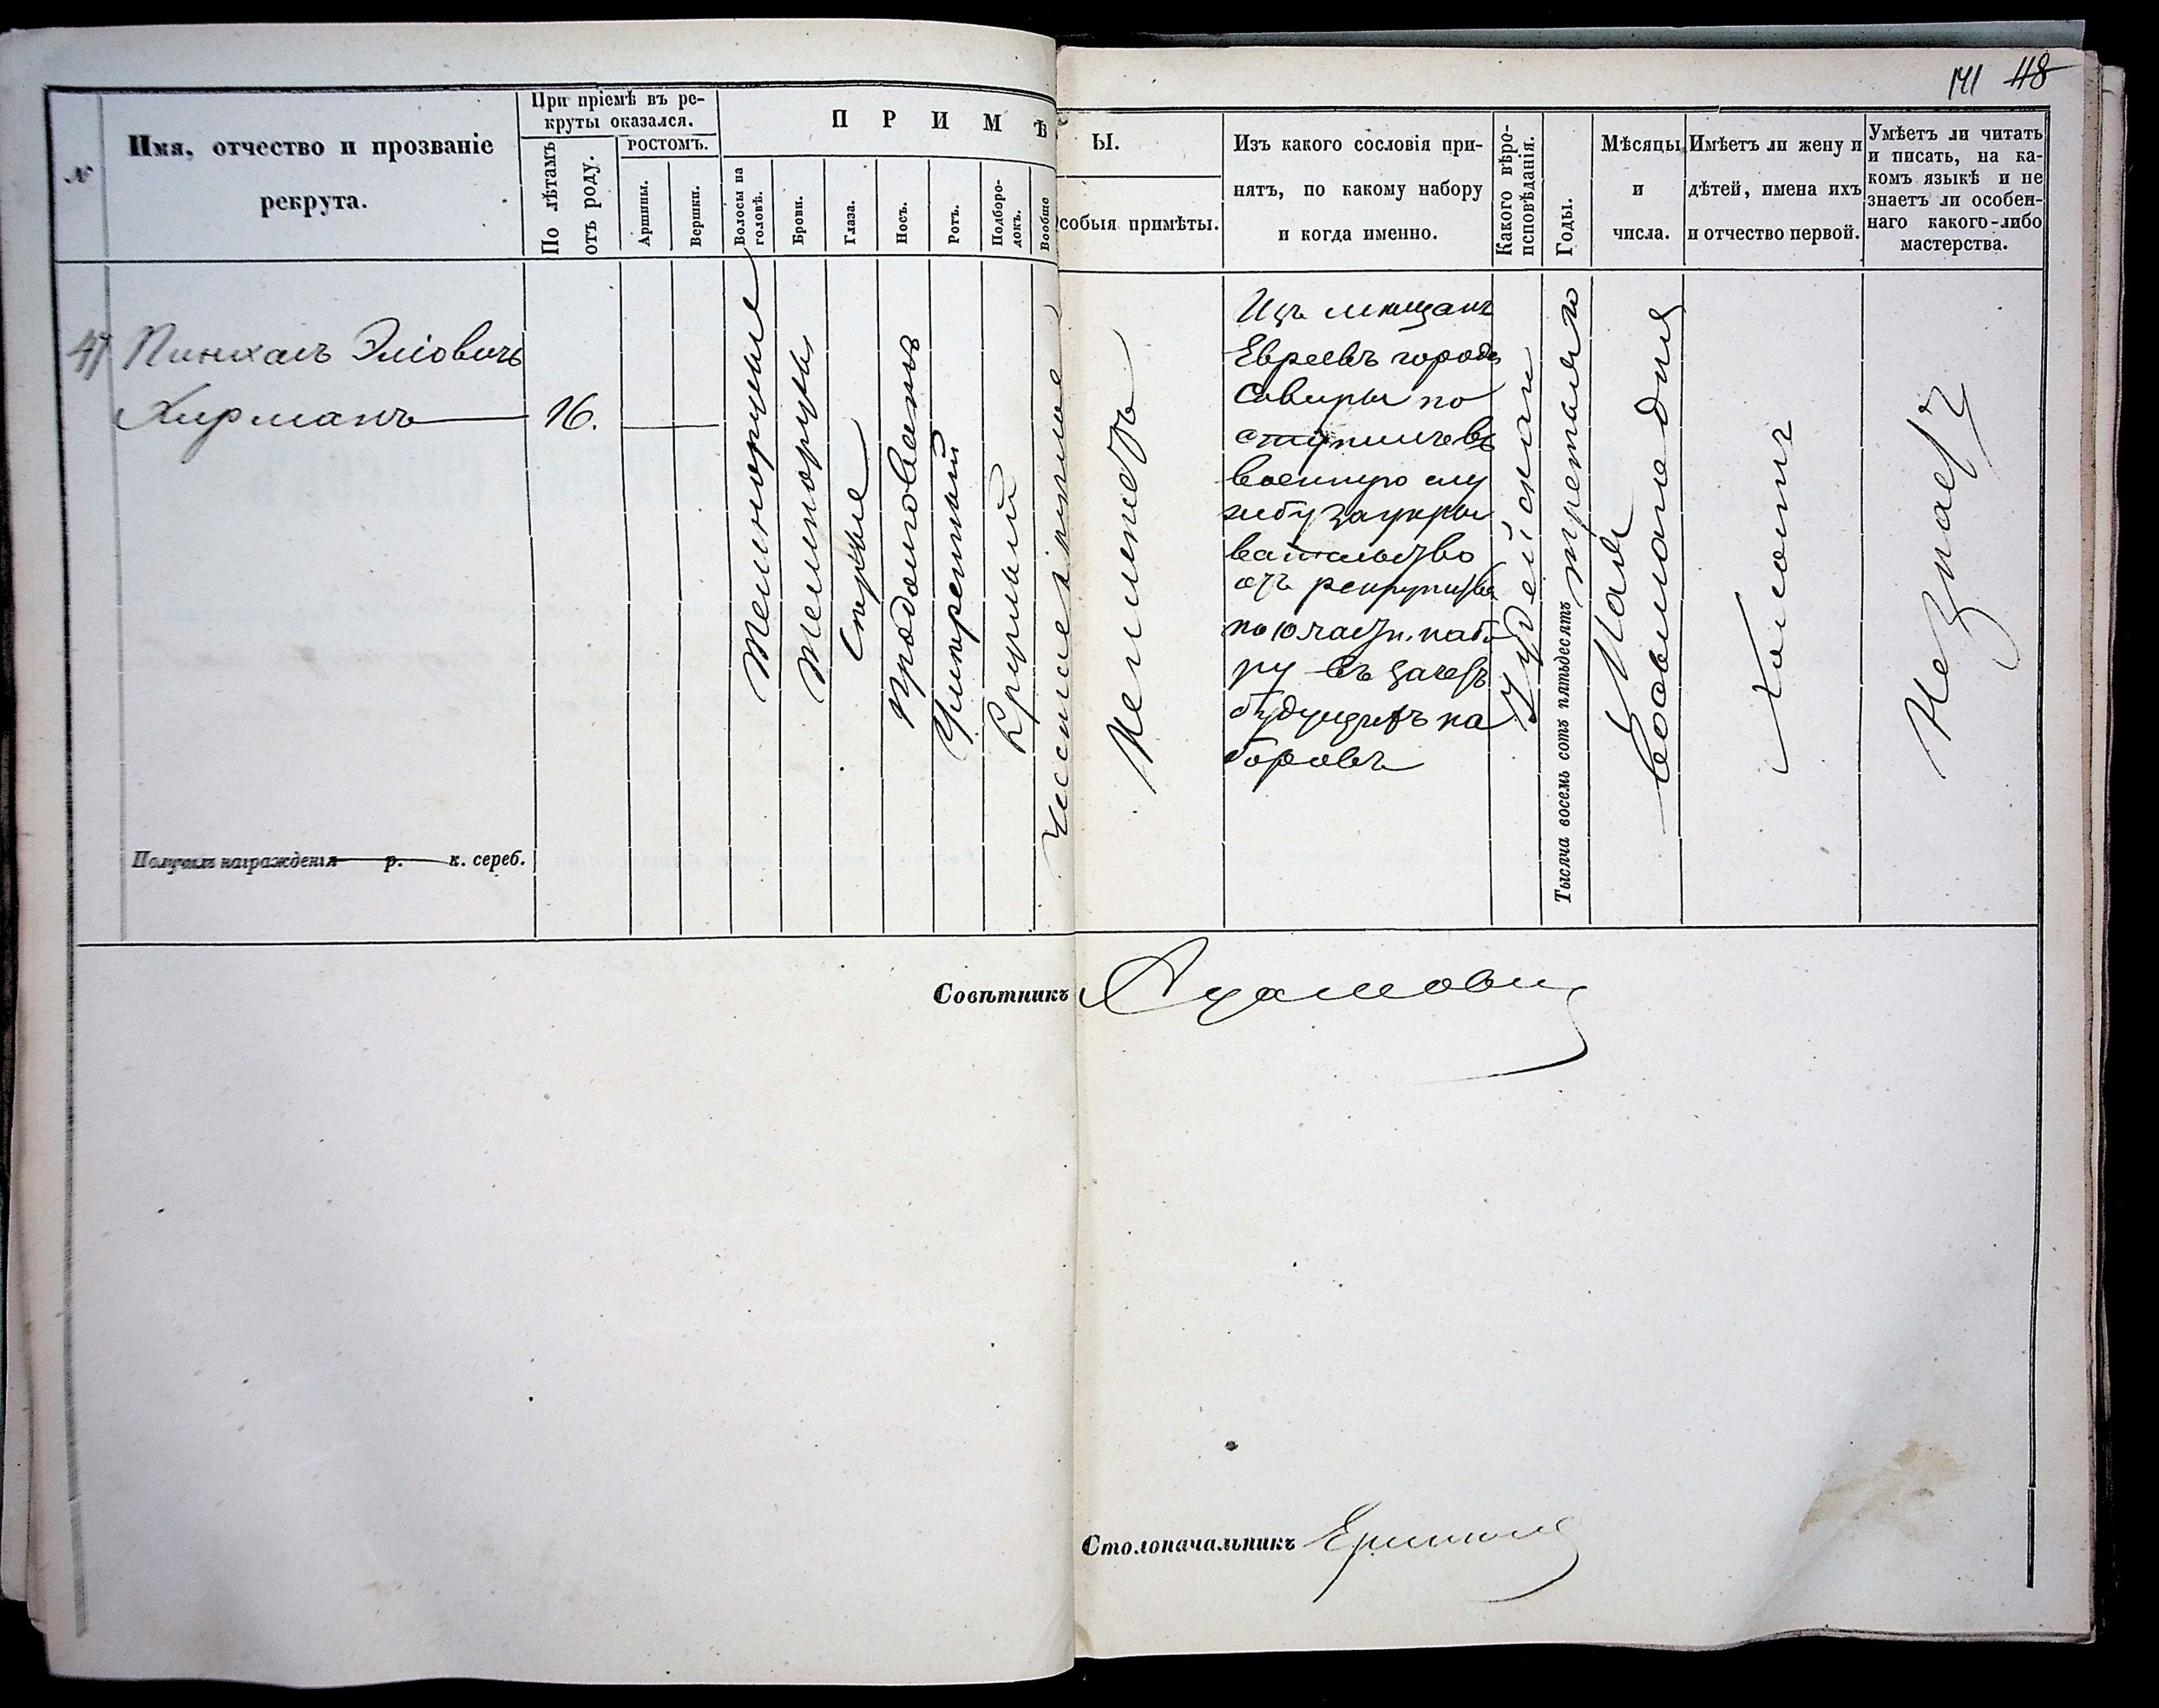 141 118
№
Имя, отчество и прозваніе
рекрута.
При пріемѣ въ ре-
круты оказался.
По лѣтамъ
отъ роду.
РОСТОМЪ.
Аршины.
Вершки.
ПРИМѢ
Ы.
Волосы на
головѣ.
Брови.
Глаза.
Носъ.
Ротъ.
Подборо-
докъ.
Вообще
собыя примѣты.
Изъ какого сословія при-
нятъ, по какому набору
и когда именно.
Какого вѣро-
исповѣданія.
Годы.
Мѣсяцы
и
числа.
Имѣетъ ли жену и
дѣтей, имена ихъ
и отчество первой.
Умѣетъ ли читать
и писать, на ка-
комъ языкѣ и не
знаетъ ли особен-
наго какого-либо
мастерства.
47
Пинхасъ Эліовичъ
Хирманъ
16.
Темнорусые
Темнорусыя
Сѣрые
Продолговатый
Умѣренный
Круглый
Чистое
Неимѣетъ
Изъ мѣщанъ
Евреевъ города
Савирны по
ступилъ въ
военную слу
жбу за укры
вательство
отъ рекрутства
по 10 части. набо
ру въ зачетъ
будущихъ на
боровъ
Іудейской
Тысяча восемь сотъ пятьдесятъ третьяго
Мая
Восьмаго дня
Холостъ
Не знаетъ
Получилъ награжденія р. к. сереб.
Совѣтникъ
Столоначальникъ